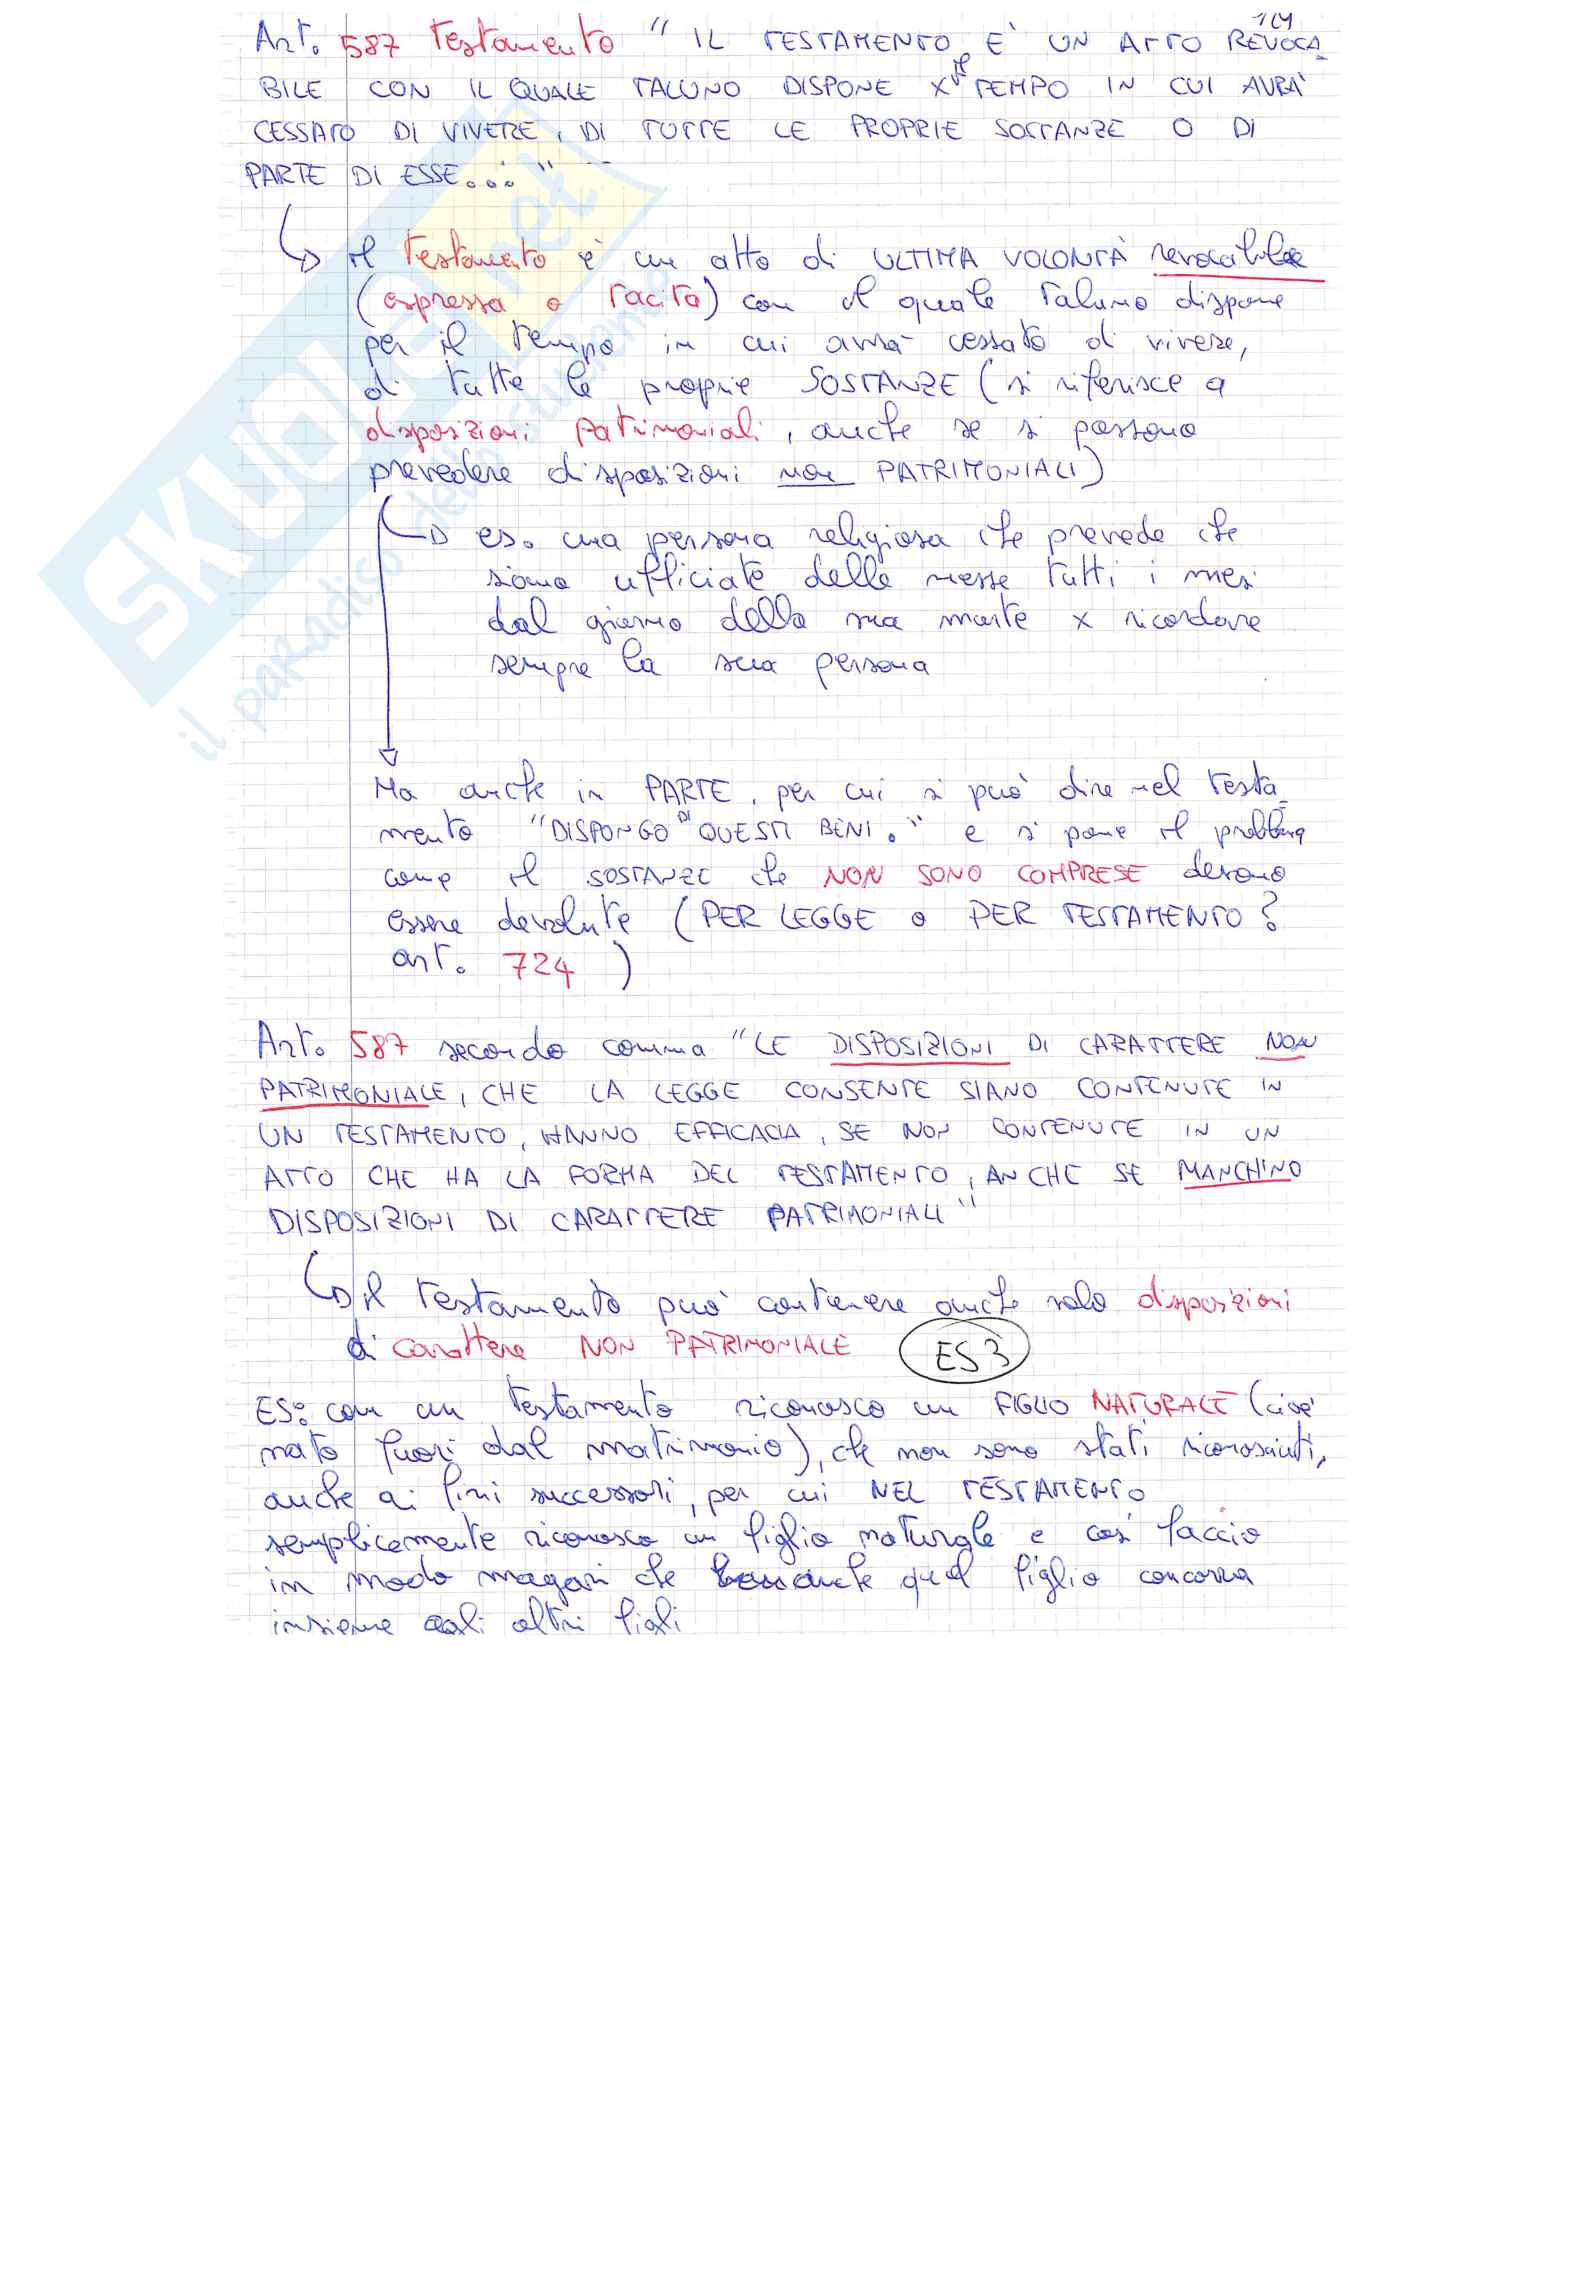 Art. 587 Testamento " IL TESTAMENTO E' UN ATTO REVOCA
BILE CON IL QUALE TALUNO DISPONE X il TEMPO IN CUI AVRA'
CESSATO DI VIVERE, DI TUTTE LE PROPRIE SOSTANZE O DI
PARTE DI ESSE..."
il testamento è un atto di ULTIMA VOLONTÀ revocabile
(espressa o tacita) con il quale taluno dispone
per il tempo in cui avrà cessato di vivere,
di tutte le proprie SOSTANZE (si riferisce a
disposizioni patrimoniali, anche se si possono
prevedere disposizioni non PATRIMONIALI)
es. una persona religiosa che prevede che
siano ufficiate delle messe tutti i mesi
dal giorno della sua morte x ricordare
sempre la sua persona
Ma anche in PARTE, per cui si può dire nel testa
mento "DISPONGO DI QUESTI BENI." e si pone il problema
come il SOSTANZE che NON SONO COMPRESE devono
essere devolute (PER LEGGE o PER TESTAMENTO?
art. 724 )
Art. 587 secondo comma "LE DISPOSIZIONI DI CARATTERE NON
PATRIMONIALE, CHE LA LEGGE CONSENTE SIANO CONTENUTE IN
UN TESTAMENTO, HANNO EFFICACIA, SE NON CONTENUTE IN UN
ATTO CHE HA LA FORMA DEL TESTAMENTO, ANCHE SE MANCHINO
DISPOSIZIONI DI CARATTERE PATRIMONIALI"
il testamento può contenere anche solo disposizioni
di carattere NON PATRIMONIALE ES 3
ES: con un testamento riconosco un FIGLIO NATURALE (cioè
nato fuori dal matrimonio), che non sono stati riconosciuti,
anche ai fini successori, per cui NEL TESTAMENTO
semplicemente riconosco un figlio naturale e così faccio
in modo magari che anche quel figlio concorra
insieme agli altri figli
SKUOLA.net
il paradiso dello studente